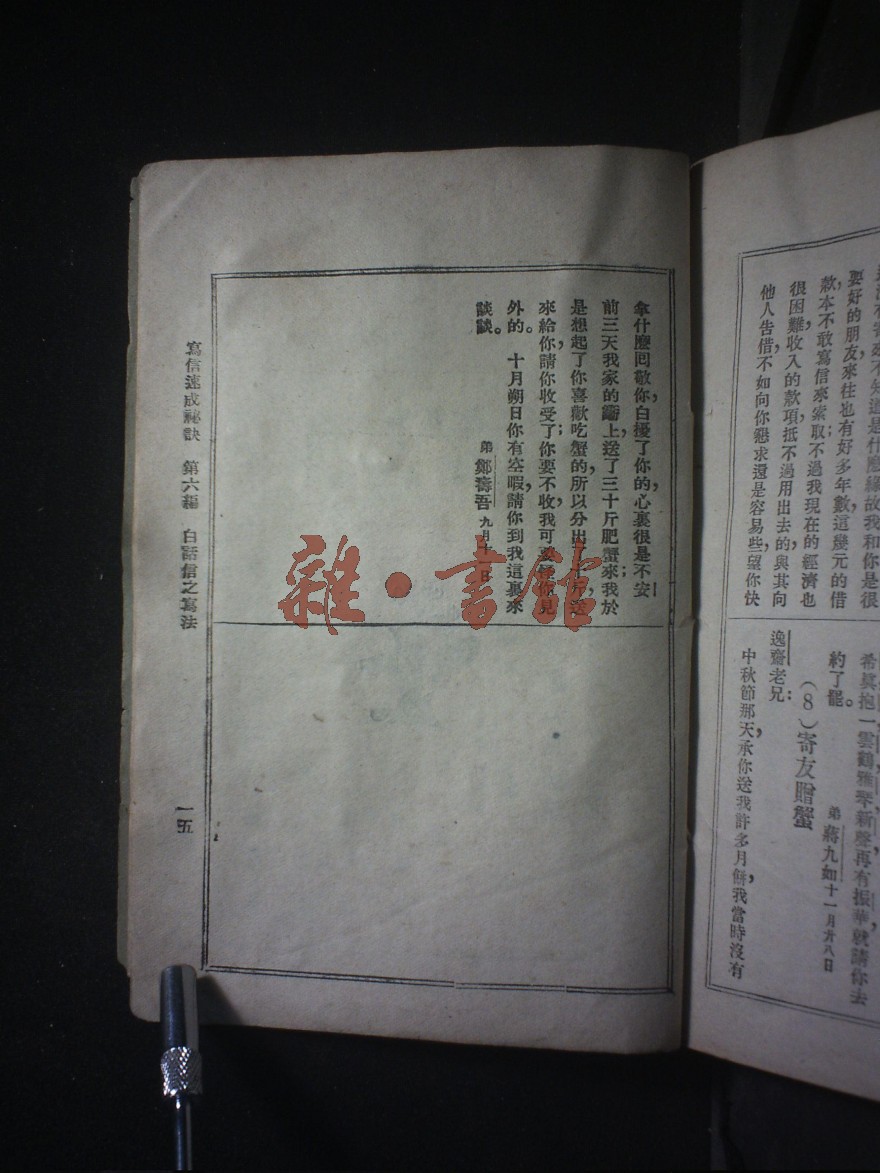 要好的朋友來往也有好多年數，這幾元的借
款，本不敢寫信來索取；不過我現在的經濟也
很困難，收入的款項，抵不過用出去的，與其向
他人告借，不如向你懇求，還是容易些，望你快
希莫抱一雲鶴雅琴新聲再有振華就請你去
約了罷。
弟蔣九如十一月廿八日
（8）寄友贈蟹
逸齋老兄：
中秋節那天，承你送我許多月餅，我當時沒有
拿什麼回敬你，白擾了你的，心裏很是不安；
前三天我家的
上，送了三十斤肥蟹來，我於
是想起了你喜歡吃蟹的，所以分出
十斤，送
來給你，請你收受了；你要不收，我可要怪你見
外的。十月朔日，你有空暇，請你到我這裏來
談談。
弟鄭壽吾九月十一日
寫信速成祕訣 第六編 白話信之寫法
一五
雜·書館